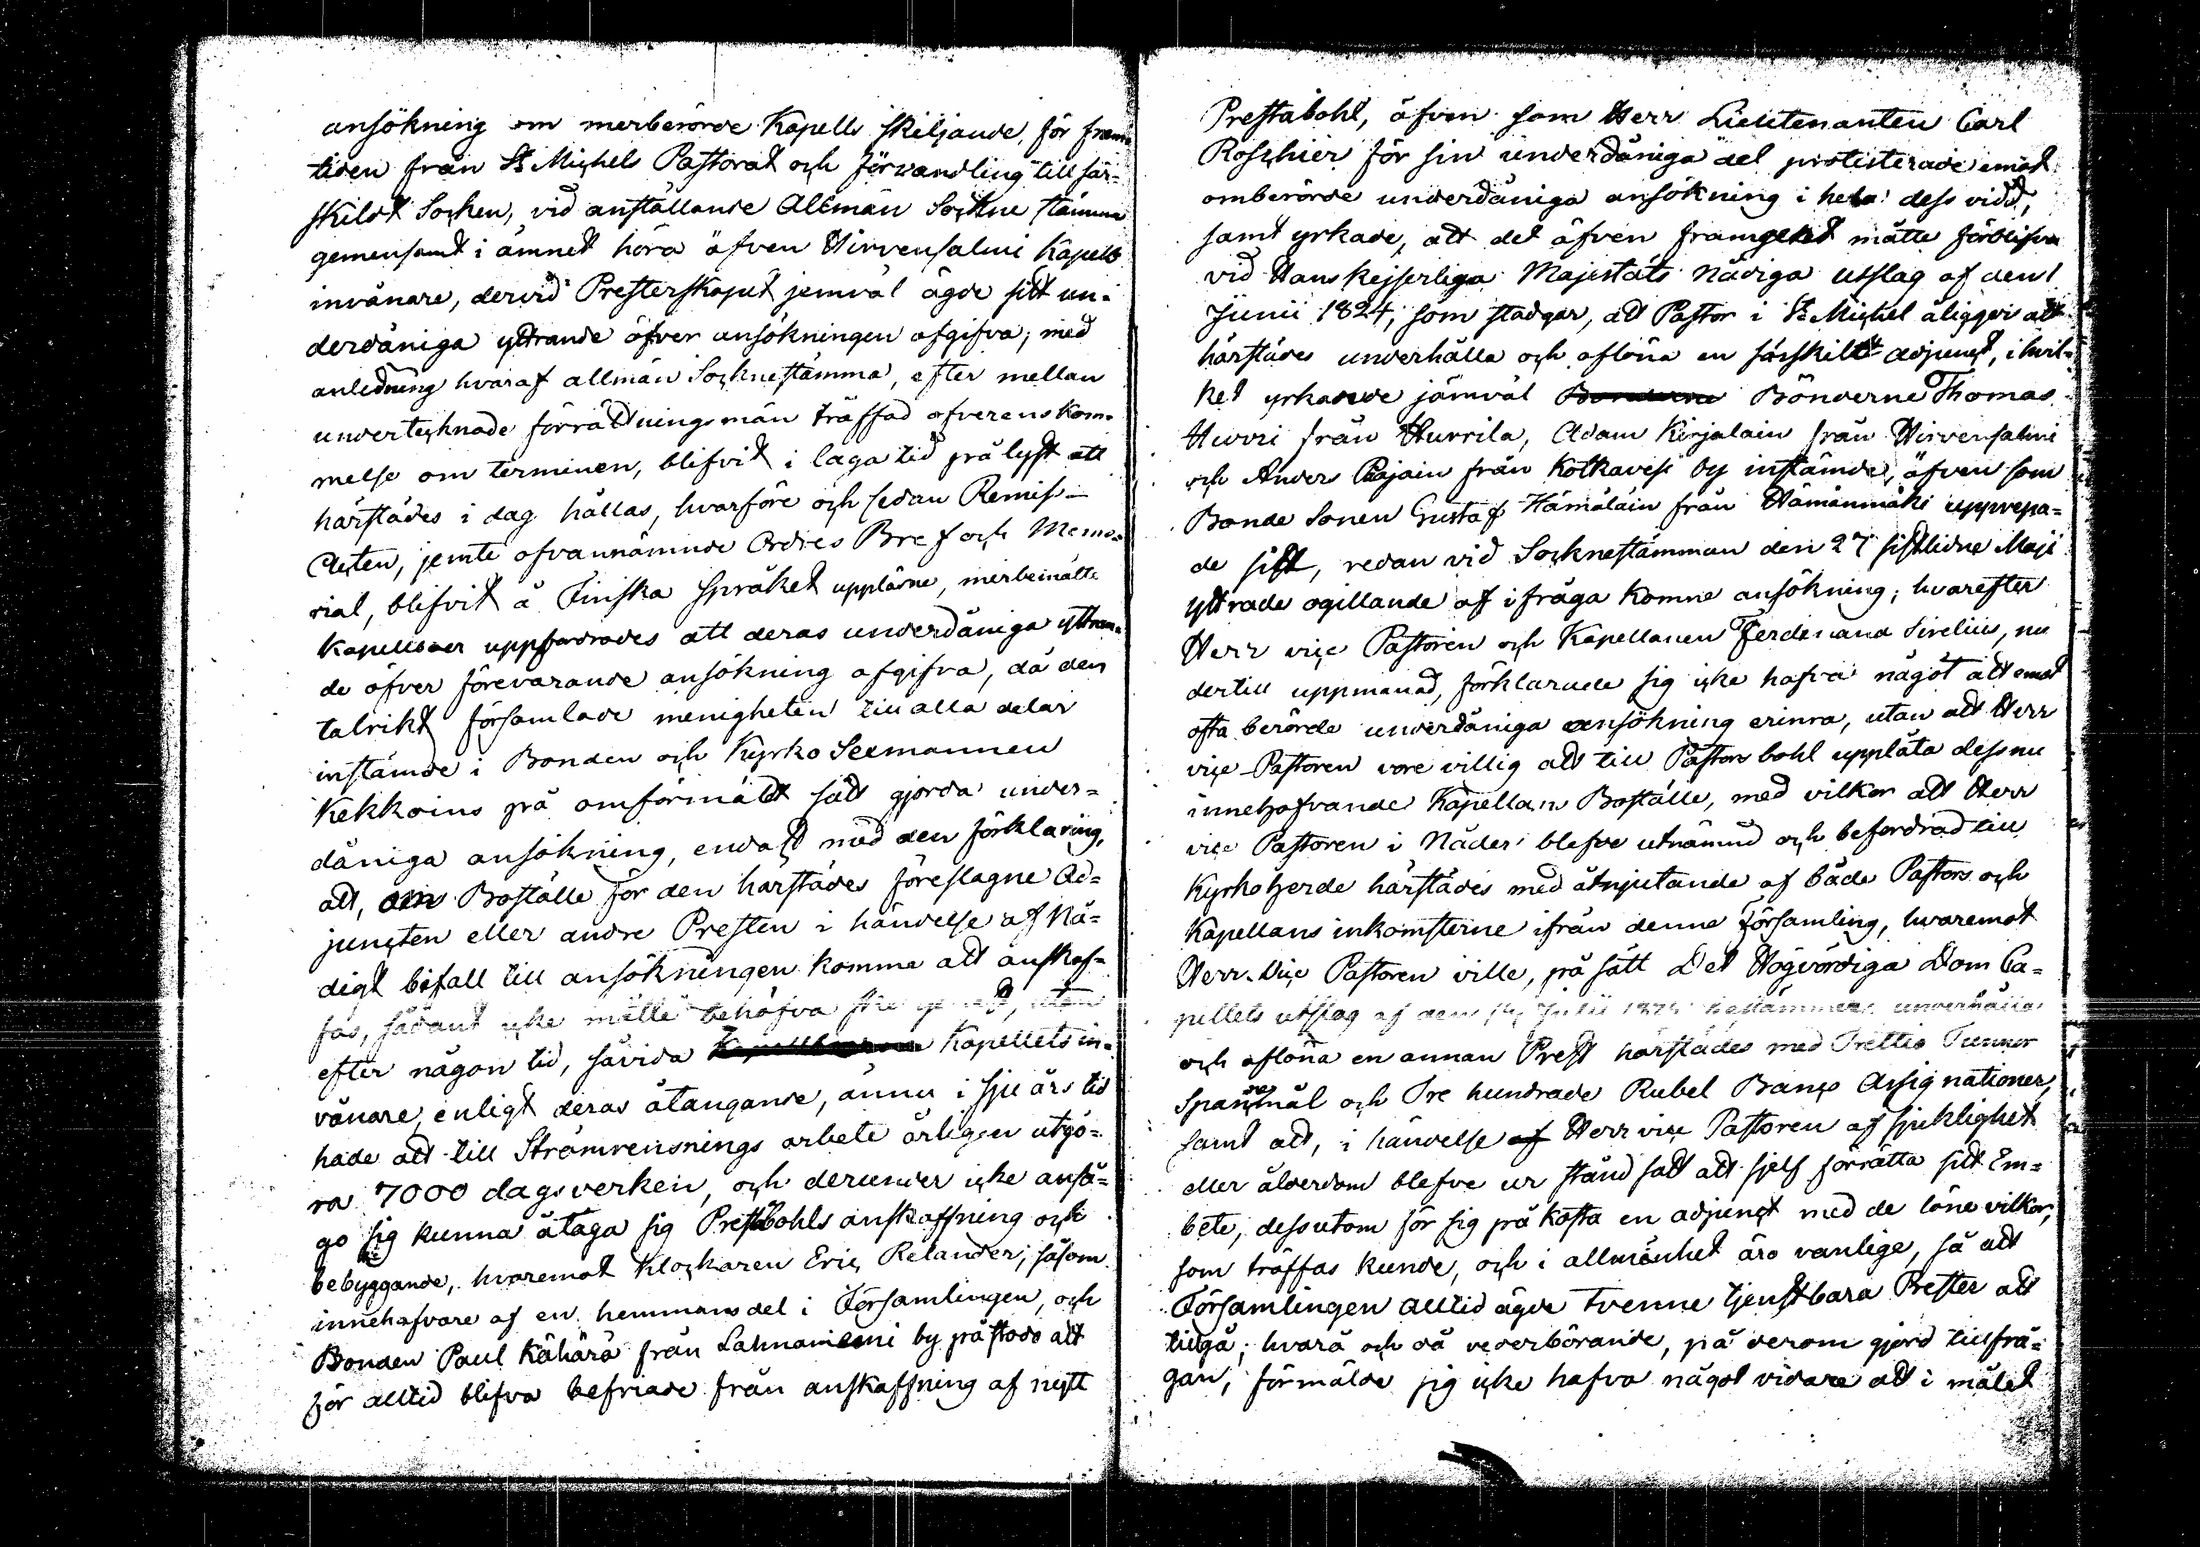 ansökning om merberörde Kapells skiljande, för fram-
tiden från S:t Michels Pastorat och förvandling till sär-
skildt Socken, vid anställande Allmän Sockne stämma
gemensamt i ämnet höra äfven Hirvensalmi Kapells
invånare, dervid Presterskapet jemväl ägde sitt un-
derdåniga yttrande öfver ansökningen afgifva; med
anledning hvaraf allmän Socknestämma, efter mellan
undertecknade förrättningsmän träffad öfverenskom-
melse om terminen, blifvit i laga tid pålyst att
härstädes i dag hållas, hvarföre och sedan Remiss-
Acten, jemte ofvannämnde Ordres Bref och Memo-
rial, blifvit å Finska Språket uppläsne, merbemälte
Kapellboer uppfordrades att deras underdåniga yttran-
de öfver förevarande ansökning afgifva, då den
talrikt församlade menigheten till alla delar
instämde i Bonden och Kyrko Sexmannen
Kekkoins på omförmäldt sätt gjorda under-
dåniga ansökning, endast med den förklaring,
att, om Boställe för den härstädes föreslagne Ad-
juncten eller andre Presten i händelse af Nå-
digt bifall till ansökningen komme att anskaf-
fas, sådant icke måtte behöfva ske genast, utan
efter någon tid, såvida Kapellets in-
vånare, enligt deras åtagande, ännu i sju års tid
hade att till Strömrensnings arbete årligen utgö-
ra 7000 dagsverken, och derunder icke anså-
go sig kunna åtaga sig Prestbohls anskaffning och
bebyggande, hvaremot Klockaren Eric Relander, såsom
innehafvare af en hemmansdel i Församlingen, och
Bonden Paul Kähärä från Lahnaniemi by påstodo att
för alltid blifva befriade från anskaffning af nytt
Prestabohl, äfven som Herr Lieutenanten Carl
Roschier för sin underdåniga del protesterade emot
omberörde underdåniga ansökning i hela dess vidd,
samt yrkade, att det äfven framgent måtte förblifva
vid Hans Kejserliga Majestäts Nådiga utslag af den 1
Junii 1824, som stadgar, att Pastor i S:t Michel åligger att
härstädes underhålla och aflöna en särskilt adjunct, i hvil-
ket yrkande jämväl Bönderne Thomas
Hurri från Hurrila, Adam Kirjalain från Hirvensalmi
och Anders Pajain från Kotkavesi by instämde, äfven som
Bonde Sonen Gustaf Hämäläin från Hämänmäki upprepa-
de sitt, redan vid Socknestämman den 27 sistlidne Maji
yttrade ogillande af ifråga komne ansökning; hvarefter
Herr vice Pastoren och Kapellanen Ferdinand Sirelius, nu
dertill uppmanad, förklarade sig icke hafva något att emot
ofta berörde underdåniga ansökning erinra, utan att Herr
vice Pastoren vore villig att till Pastors bohl upplåta dess nu
innehafvande Kapellans Boställe, med vilkor att Herr
vice Pastoren i Nåder blefve utnämnd och befordrad till
Kyrkoherde härstädes med åtnjutande af både Pastors och
Kapellans inkomsterne ifrån denne församling, hvaremot
Herr Vice Pastoren ville, på sätt Det Högvördiga Dom Ca-
pitlets utslag af den Julii bestämmer, underhålla
och aflöna en annan Prest härstädes med Trettio Tunnor
Spannemål och Tre hundrade Rubel Banco Assignationer,
samt att, i händelse af Herr vice Pastoren af sjuklighet
eller ålderdom blefve ur stånd satt att sjelf förrätta sitt Em-
bete, dessutom för sig på kosta en adjunct med de löne vilkor,
som träffas kunde, och i allmänhet äro vanlige, så att
Församlingen alltid ägde tvenne tjenstbara Prester att
tillgå; hvarå och då vederbörande, på derom gjord tillfrå-
gan, förmälde sig icke hafva något vidare att i målet